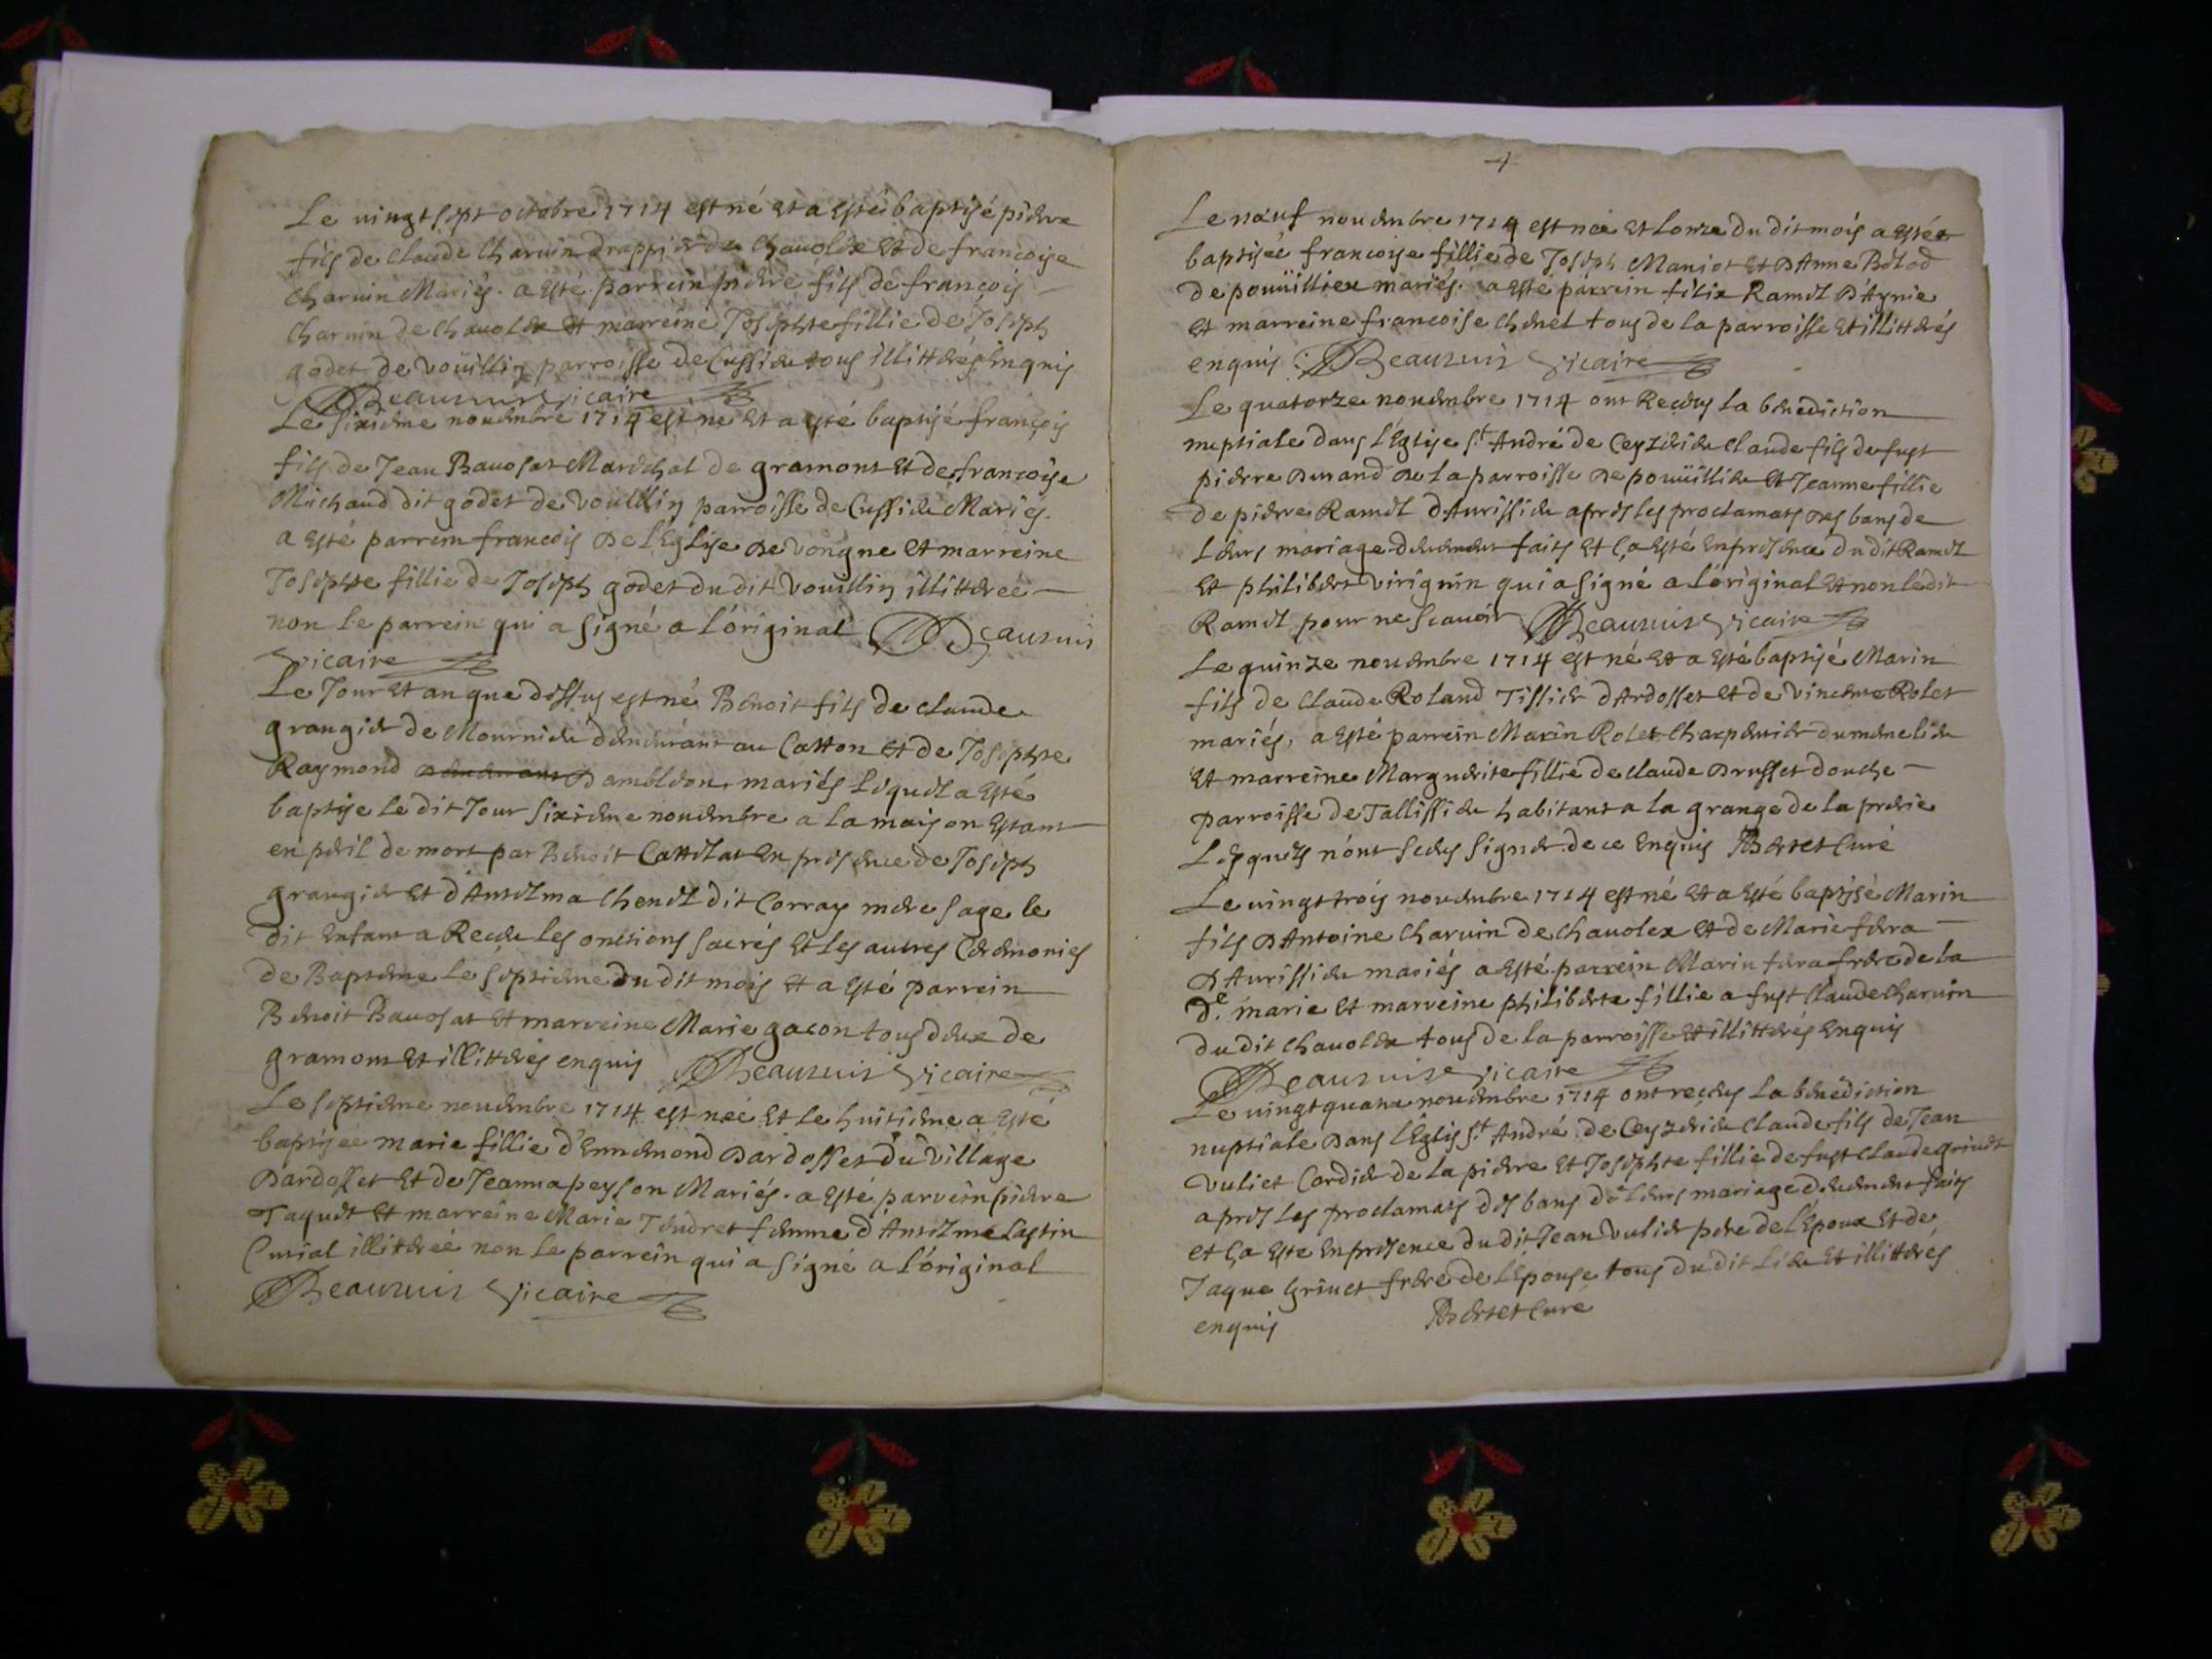 Le vingt sept octobre 1714 est né et a esté baptisé pierre
fils de claude Charuin drappier de Chauolex et de francoise
Charuin Mariés. a esté parrein pierre fils de françois
Charuin de Chauolex et marreine Josephte fillie de Joseph
godet de vouillin parroisse de Cussieu tous illitterés Enquis
Beauruis vicaire
Le sixieme nouembre 1714 est né et a esté baptisé françois
fils de Jean Bauosat Mareschal de gramont et de francoise
Michaud dit godet de vouillin parroisse de Cussieu Mariés.
a esté parrein francois De l'Eglise De vongne et marreine
Josephte fillie de Joseph godet du dit vouillin illitterée
non le parrein qui a signé a l'original Beauruis
vicaire
Le Jour et an que dessus est né Benoit fils de claude
grangier de Mournieu demeurant au Catton et de Josephte
Raymond D'ambleon mariés lequel a esté
baptise le dit Jour sixieme nouembre a la maison Estant
en peril de mort par Benoit Cattelat En presence de Joseph
grangier et d'Antelma Chenel dit Corray mere sage le
dit Enfant a Receu les onctions sacrés et les autres Ceremonies
de Bapteme le septieme du dit mois et a esté parrein
Benoit Bauosat et marreine Marie gacon tous deux de
gramont et illitterés enquis Beauruis vicaire
Le septieme nouembre 1714 est née et le huitieme a esté
baptisée marie fillie d'Ennemond Dardosset du village
Dardosset et de Jeanna peyson Mariés. a esté parrein pierre
Taquet et marreine Marie Teudret femme d'Antelme Lastin
Curial illitterée non le parrein qui a signé a l'original
Beauruis vicaire
4
Le neuf nouembre 1714 est née et lonze du dit mois a estée
baptisée francoise fillie de Joseph Maniot et D'Anne Bolod
de pouuillieu mariés. a esté parrein felix Ramel D'Aynie
et marreine francoise Chenel tous de la parroisse et illitterés
enquis. Beauruis vicaire
Le quatorze nouembre 1714 ont Receus la benediction
nuptiale dans l'Eglise St André de Ceyzerieu Claude fils de fust
pierre Durand De la parroisse De pouuillieu et Jeanne fillie
de pierre Ramel d'Aurissieu apres les proclamats Des bans de
Leurs mariage deuement faits et ça esté En presence du dit Ramel
et philibert viriguin qui a signé a l'original et non le dit
Ramel pour ne scauoir Beauruis vicaire
Le quinze nouembre 1714 est né et a esté baptisé Marin
fils de Claude Roland Tissier d'Ardosset et de vincente Rolet
mariés, a esté parrein Marin Rolet Charpentier du meme lieu
et marreine Marguerite fillie de claude Drusset douche
parroisse de Tallissieu habitant a la grange de la prerie
Lesquels n'ont sceus signer de ce Enquis Bertet Curé
Le vingt trois nouembre 1714 est né et a esté baptisé Marin
fils D'Antoine Charuin de Chauolex et de Marie fera
D'Aurissieu mariés a esté parrein Marin fera frere de la
de. marie et marreine philiberte fillie a fust Claude Charuin
du dit Chauolex tous de la parroisse et illitterés Enquis
Beauruis vicaire
Le vingt quatre nouembre 1714 ont receus la benediction
nuptiale Dans l'Eglis St André de Ceyzerieu Claude fils de Jean
vuliet Cordier de la pierre et Josephte fillie de fust Claude griuet
apres les proclamats des bans de leurs mariage deuement faits
et ça este En presence du dit Jean vulier pere de l'Epoux et de
Jaque Griuet frere de l'Epouse tous du dit lieu et illitterés
enquis Bertet Cure